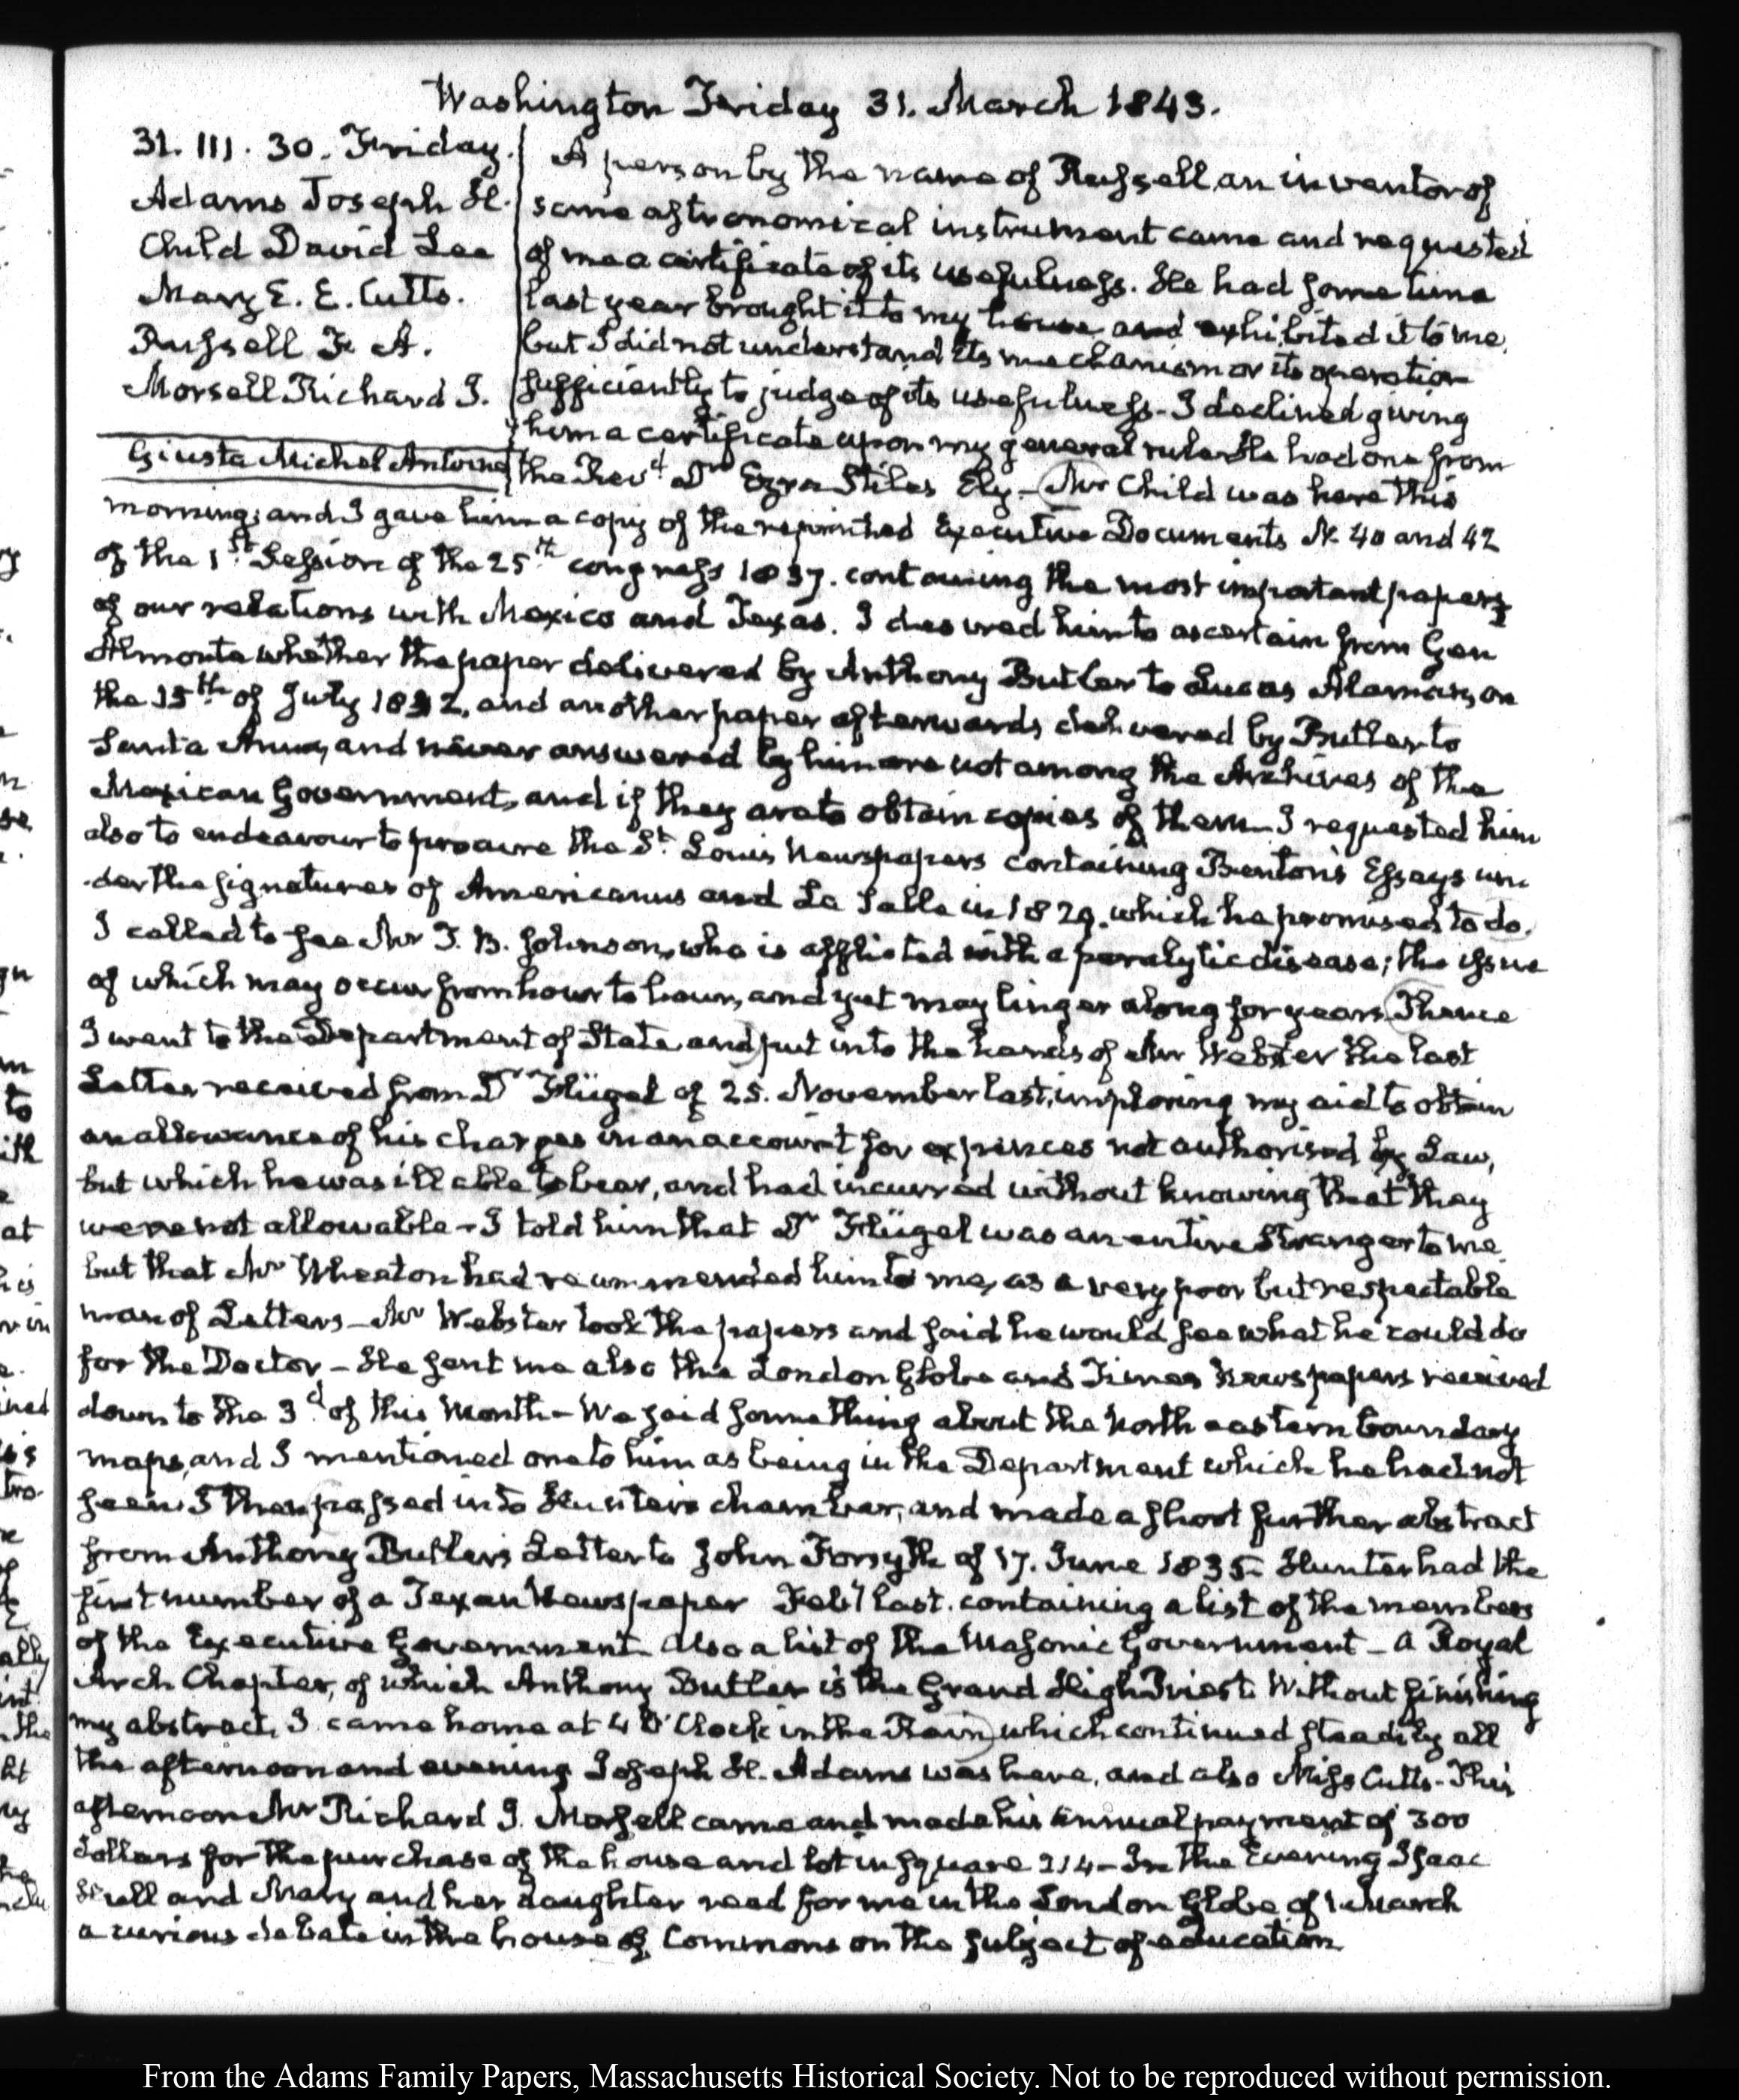 Washington Friday 31. March 1843.
31. III. 30. Friday.
Adams Joseph H.
Child David Lee
Mary E. E. Cutts.
Russell F. A.
Morsell Richard J.
Giusta Michel Antoine
A person by the name of Russell, an inventor of
some astronomical instrument came and requested
of me a certificate of its usefulness. He had some time
last year brought it to my house and exhibited it to me,
but I did not understand its mechanism or its operation
sufficiently to judge of its usefulness - I declined giving
him a certificate upon my general rule. He had one from
the Revd. Dr Ezra Stiles Ely - Mr Child was here this
morning; and I gave him a copy of the reprinted Executive Documents N. 40 and 42
of the 1st. Session of the 25th congress 1837. containing the most important papers
of our relations with Mexico and Texas. I desired him to ascertain from Gen
Almonte whether the paper delivered by Anthony Butler to Lucas Alaman, on
the 15th of July 1832, and another paper afterwards delivered by Butler to
Santa Anna, and never answered by him are not among the Archives of the
Mexican Government, and if they are to obtain copies of them - I requested him
also to endeavour to procure the St. Louis Newspapers containing Benton's Essays un-
-der the signatures of Americanus and La Salle in 1829. which he promised to do.
I called to see Mr J. B. Johnson, who is afflicted with a paralytic disease; the issue
of which may occur from hour to hour, and yet may linger along for years. Thence
I went to the Department of State and put into the hands of Mr Webster the last
Letter received from Dr Flügel of 25. November last, imploring my aid to obtain
an allowance of his charges in an account for expences not authorised by Law,
but which he was ill able to bear, and had incurred without knowing that they
were not allowable - I told him that Dr Flügel was an entire Stranger to me,
but that Mr Wheaton had recommended him to me, as a very poor but respectable
man of Letters - Mr Webster took the papers and said he would see what he could do
for the Doctor - He sent me also the London Globe and Times Newspapers received
down to the 3d. of this Month - We said something about the North eastern boundary
maps, and I mentioned one to him as being in the Department which he had not
seen. I then passed into Hunter's chamber, and made a short further abstract
from Anthony Butler's Letter to John Forsyth of 17. June 1835. Hunter had the
first number of a Texan Newspaper Feby last. containing a list of the members
of the Executive Government. Also a list of the Masonic Government - A Royal
Arch Chapter, of which Anthony Butler is the Grand High Priest. Without finishing
my abstract, I came home at 4 O'Clock in the Rain, which continued steadily all
the afternoon and evening. Joseph H. Adams was here, and also Miss Cutts - This
afternoon Mr Richard J. Morsell came and made his annual payment of 300
dollars for the purchase of the house and lot in square 214 - In the Evening Isaac
Hull and Mary and her daughter read for me in the London Globe of 1 March
a curious debate in the house of Commons on the subject of education
From the Adams Family Papers, Massachusetts Historical Society. Not to be reproduced without permission.